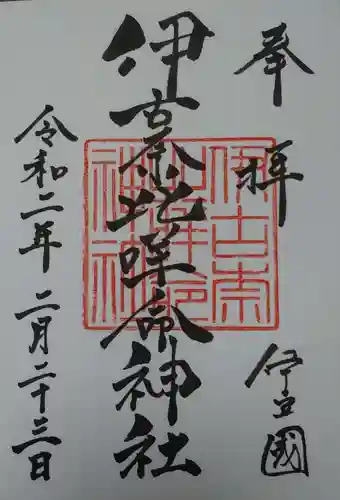 奉拝
伊豆國
伊古奈比咩命神社
伊古奈
比咩命
神社
令和二年二月二十三日